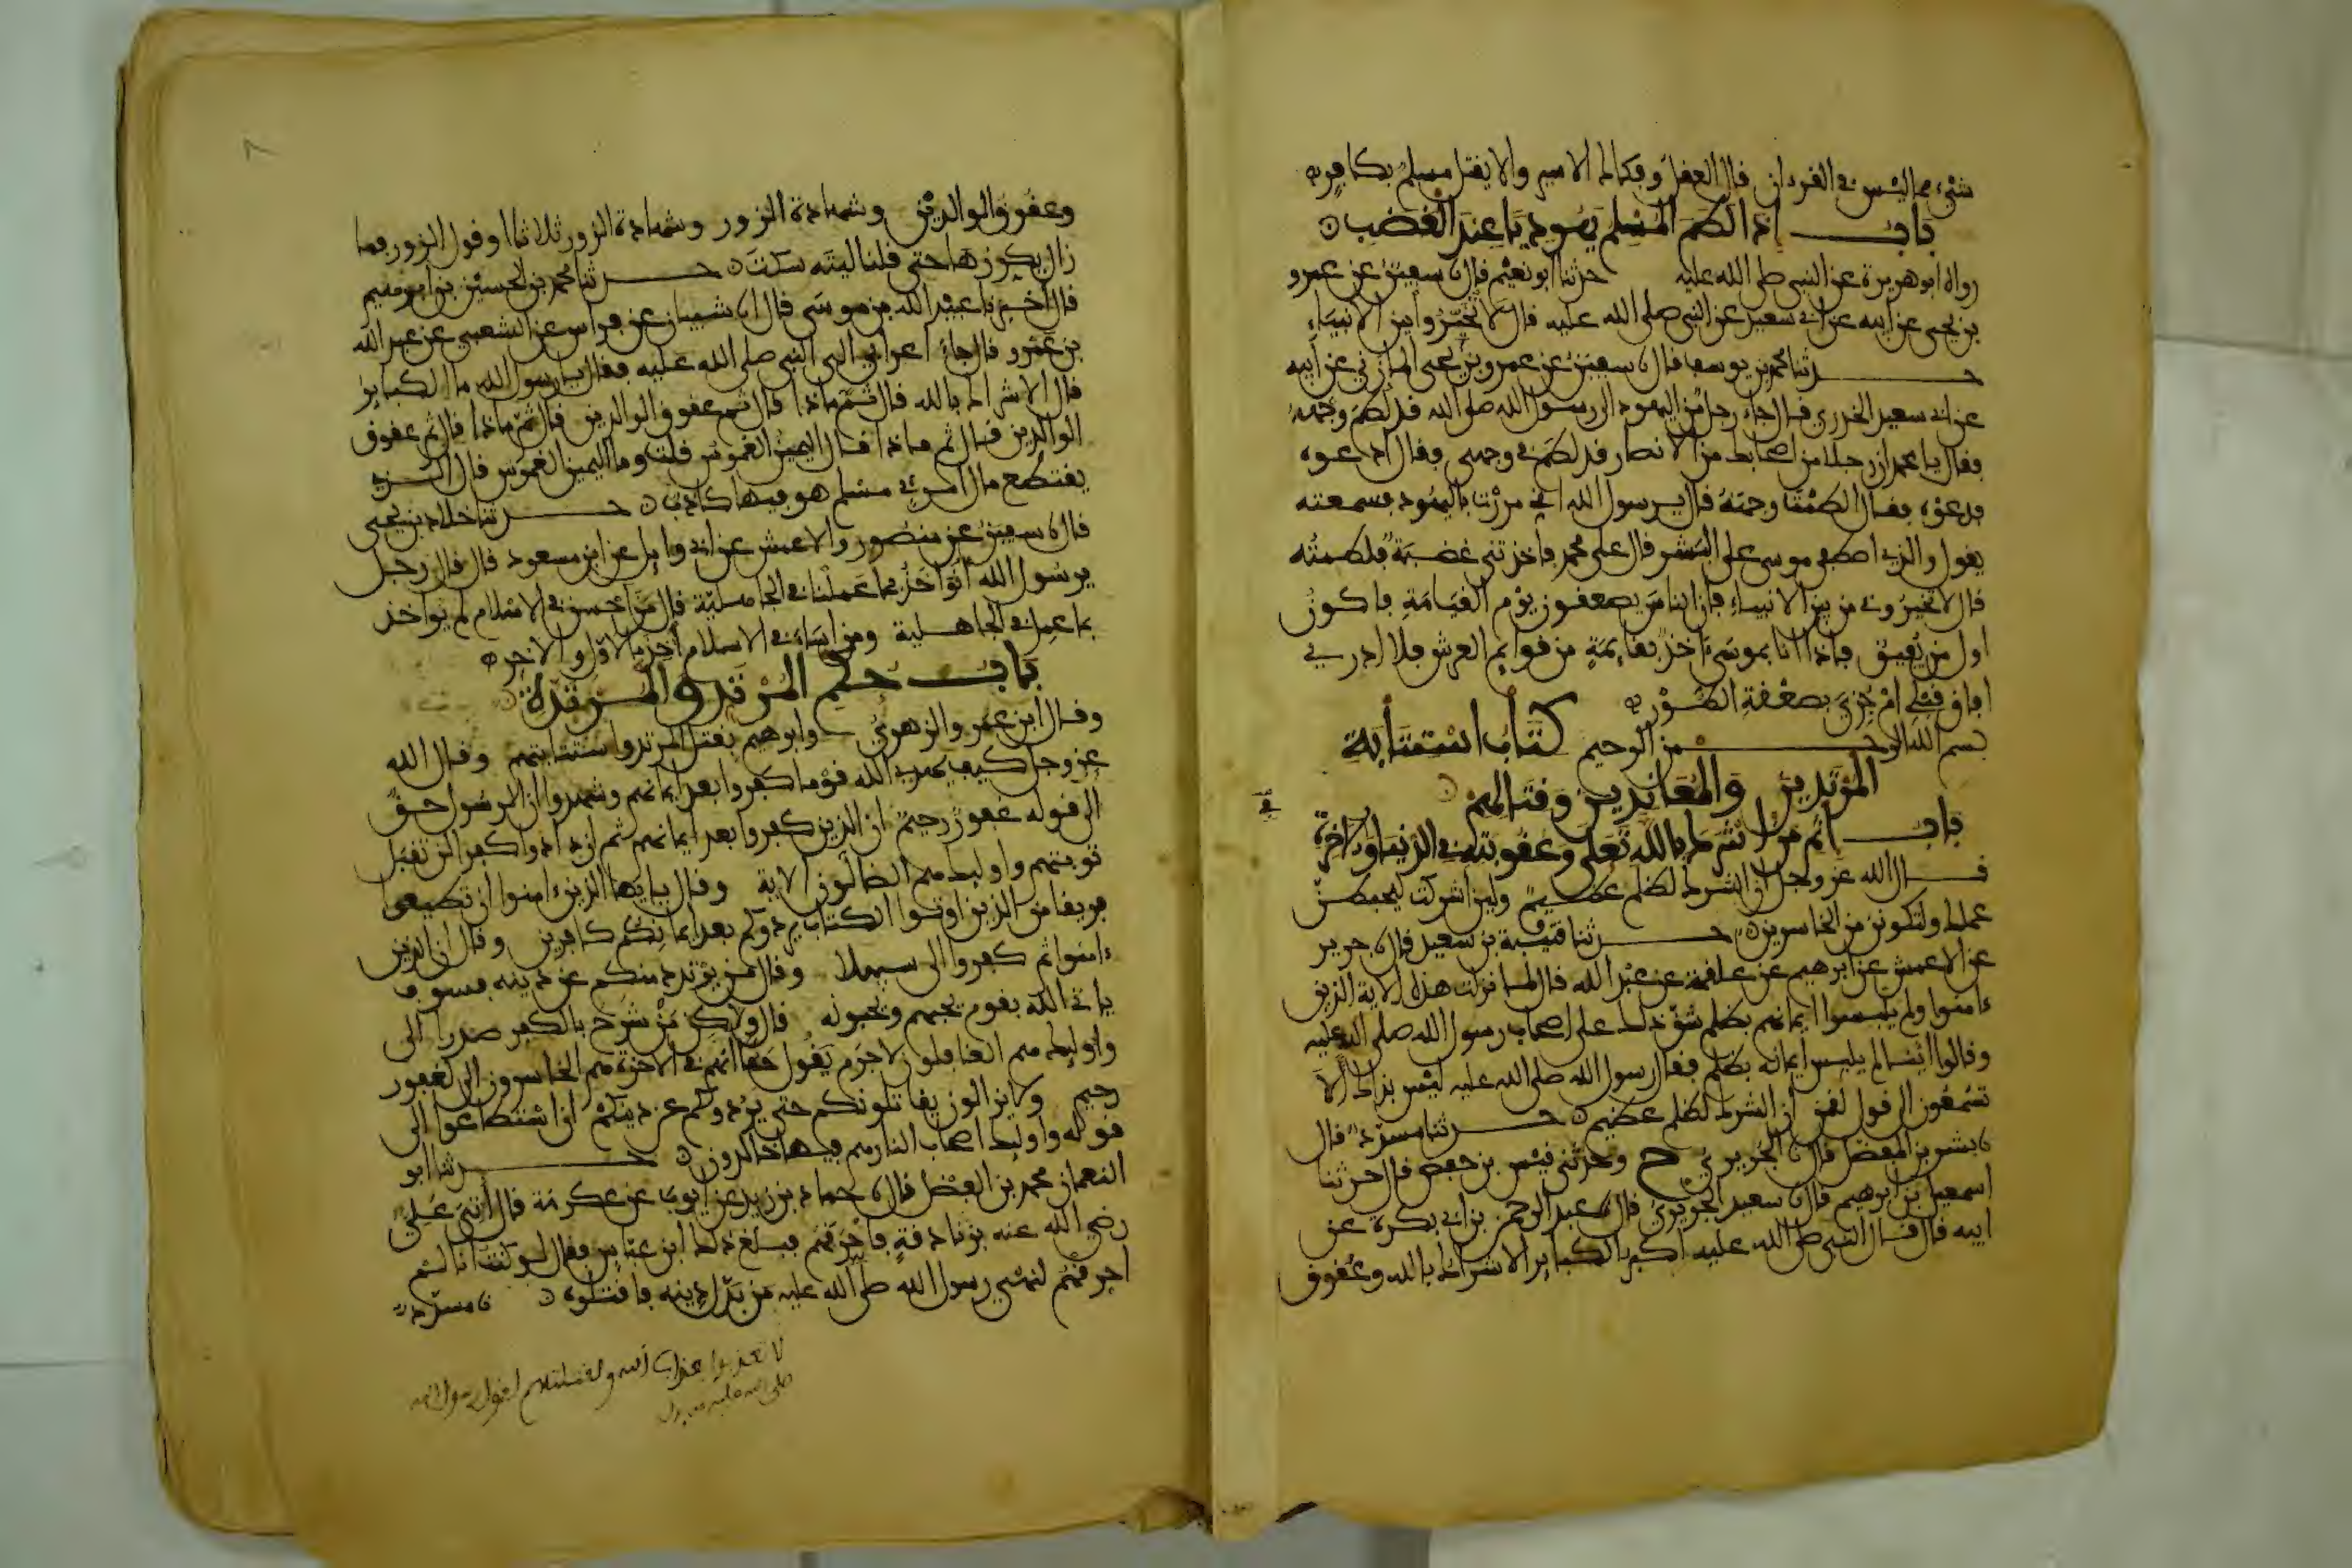 شيء مما ليس في القرءان قال العقل وفكاك الاسير والا يقتل مسلم بكافر
باب اذا لطم المسلم يهوديا عند الغضب
رواه ابو هريرة عن النبي صلى الله عليه حدثنا ابو نعيم قال نا سفين عن عمرو
بن يحيى عن ابيه عن ابي سعيد عن النبي صلى الله عليه قال لا تخيروا بين الانبياء
حدثنا محمد بن يوسف قال نا سفين عن عمرو بن يحيى المازني عن ابيه
عن ابي سعيد الخدري قال جاء رجل من اليهود الى رسول الله صلى الله قد لطم وجهه
فقال يا محمد ان رجلا من اصحابك من الانصار قد لطم في وجهي فقال ادعوه
فدعوه فقال الطمت وجهه قال يرسول الله اني مررت باليهود فسمعته
يقول والذي اصطفى موسى على البشر قال على محمد فاخذتني غضبة فلطمته
قال لا تخيروني من بين الانبياء فان الناس يصعقون يوم القيامة فاكون
اول من يفيق فاذا انا بموسى اخذ بقايمة من قوايم العرش فلا ادري
افاق قبلي ام جزي بصعقة الطور
بسم الله الرحمن الرحيم كتاب استتابة
المرتدين والمعاندين وقتالهم
باب اثم من اشرك بالله تعلى وعقوبته في الدنيا والاخرة
قال الله عز وجل ان الشرك لظلم عظيم ولين اشركت ليحبطن
عملك ولتكونن من الخاسرين حدثنا قتيبة بن سعيد قال نا جرير
عن الاعمش عن ابرهيم عن علقمة عن عبد الله قال لما نزلت هذه الاية الذين
ءامنوا ولم يلبسوا ايمانهم بظلم شق ذلك على اصحاب رسول الله صلى الله عليه
وقالوا اينا لم يلبس ايمانه بظلم فقال رسول الله صلى الله عليه ليس بذاك الا
تسمعون الى قول لقمن ان الشرك لظلم عظيم حدثنا مسدد قال
نا بشر بن المفضل قال نا الجريري ح وحدثني قيس بن حفص قال حدثنا
اسمعيل بن ابرهيم قال نا سعيد الجريري قال نا عبد الرحمن بن ابي بكرة عن
ابيه قال قال النبي صلى الله عليه اكبر الكباير الاشراك بالله وعقوق
وعقوق الوالدين وشهادة الزور وشهادة الزور ثلاثا او قول الزور فما
زال يكررها حتى قلنا ليته سكت حدثنا محمد بن الحسين بن ابرهيم
قال اخبرنا عبيد الله بن موسى قال نا شيبان عن فراس عن الشعبي عن عبد الله
بن عمرو قال جاء اعرابي الى النبي صلى الله عليه فقال يا رسول الله ما الكباير
قال الاشراك بالله قال ثم ماذا قال ثم عقوق الوالدين قال ثم ماذا قال ثم عقوق
الوالدين قال ثم ماذا قال اليمين الغموس قلت وما اليمين الغموس قال الذي
يقتطع مال امرئ مسلم هو فيها كاذب حدثنا خلاد بن يحيى
قال نا سفين عن منصور والاعمش عن ابي وايل عن ابن مسعود قال قال رجل
يرسول الله انؤاخذ بما عملنا في الجاهلية قال من احسن في الاسلام لم يواخذ
بما عمل في الجاهلية ومن اساء في الاسلام اخذ بالاول والاخر
باب حكم المرتد والمرتدة
وقال ابن عمر والزهري وابرهيم يقتل المرتد واستتابتهم وقال الله
عز وجل كيف يهدي الله قوما كفروا بعد ايمانهم وشهدوا ان الرسول حق
الى قوله غفور رحيم ان الذين كفروا بعد ايمانهم ثم ازدادوا كفرا لن تقبل
توبتهم واوليك هم الضالون الاية وقال يا يها الذين ءامنوا ان تطيعوا
فريقا من الذين اوتوا الكتاب يردوكم بعد ايمانكم كافرين وقال ان الذين
ءامنوا ثم كفروا الى سبيلا وقال من يرتدد منكم عن دينه فسوف
ياتي الله بقوم يحبهم ويحبونه قال ولاكن من شرح بالكفر صدرا الى
واوليك هم الغافلون لا جرم يقول حقا انهم في الاخرة هم الخاسرون الى لغفور
رحيم ولا يزالون يقاتلونكم حتى يردوكم عن دينكم ان استطاعوا الى
قوله واوليك اصحاب النار هم فيها خالدون حدثنا ابو
النعمان محمد بن الفضل قال نا حماد بن زيد عن ايوب عن عكرمة قال اتي علي
رضي الله عنه بزنادقة فاحرقهم فبلغ ذلك ابن عباس فقال لو كنت انا لم
احرقهم لنهي رسول الله صلى الله عليه من بدل دينه فاقتلوه نا مسدد
لا تعذبوا بعذاب الله ولقتلتهم لقول رسول الله
صلى الله عليه